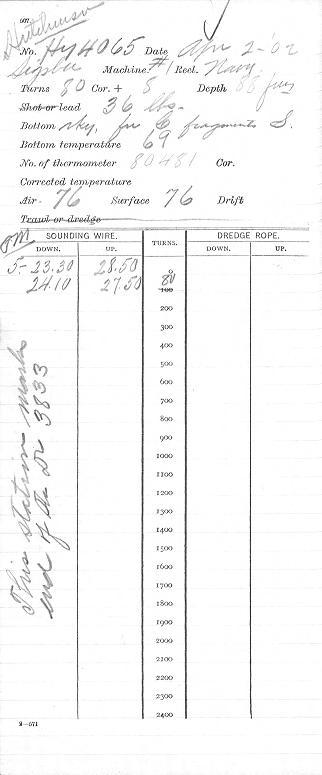 Hutchinson
No. Hy 4065 Date Apr 2-'02
Sigsbee Machine #1 Reel. Navy.
Turns 80 Cor. + 8 Depth 88 fms
Shot or lead 36 lbs.
Bottom rky, fne C fragments S.
Bottom temperature 69
No. of thermometer 80481 Cor.
Corrected temperature
Air- 76 Surface 76 Drift
Trawl or dredge
PM SOUNDING WIRE. TURNS. DREDGE ROPE.
DOWN. UP. DOWN. UP.
5-23.30 28.50 0
24.10 27.50 80
100
200
300
400
500
600
700
800
900
1000
1100
1200
1300
1400
1500
1600
1700
1800
1900
2000
2100
2200
2300
2400
This station marks
end of the Dr 3833
2-571